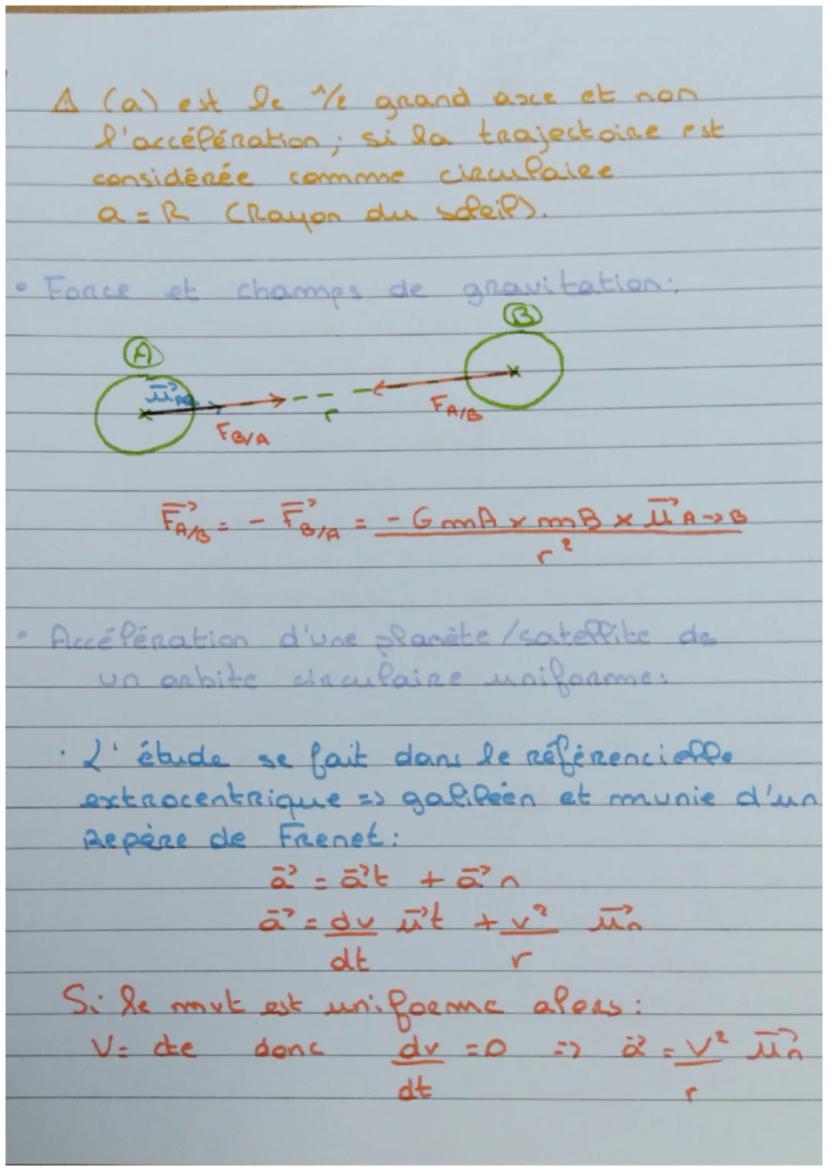 ⚠ (a) est le 1/2 grand axe et non
l'accélération; si la trajectoire est
considérée comme circulaire
a = R (Rayon du soleil).
• Force et champs de gravitation:
A B
u⃗AB
F B/A r F A/B
F⃗A/B = - F⃗B/A = - G mA x mB x u⃗ A→B
r²
• Accélération d'une planète/satellite de
un orbite circulaire uniforme:
· L'étude se fait dans le référencielle
extrocentrique => galiléen et munie d'un
Repère de Frenet:
a⃗ = a⃗t + a⃗n
a⃗ = dv u⃗t + v² u⃗n
dt r
Si le mvt est uniforme alors:
V = cte donc dv = 0 => a⃗ = V² u⃗n
dt r